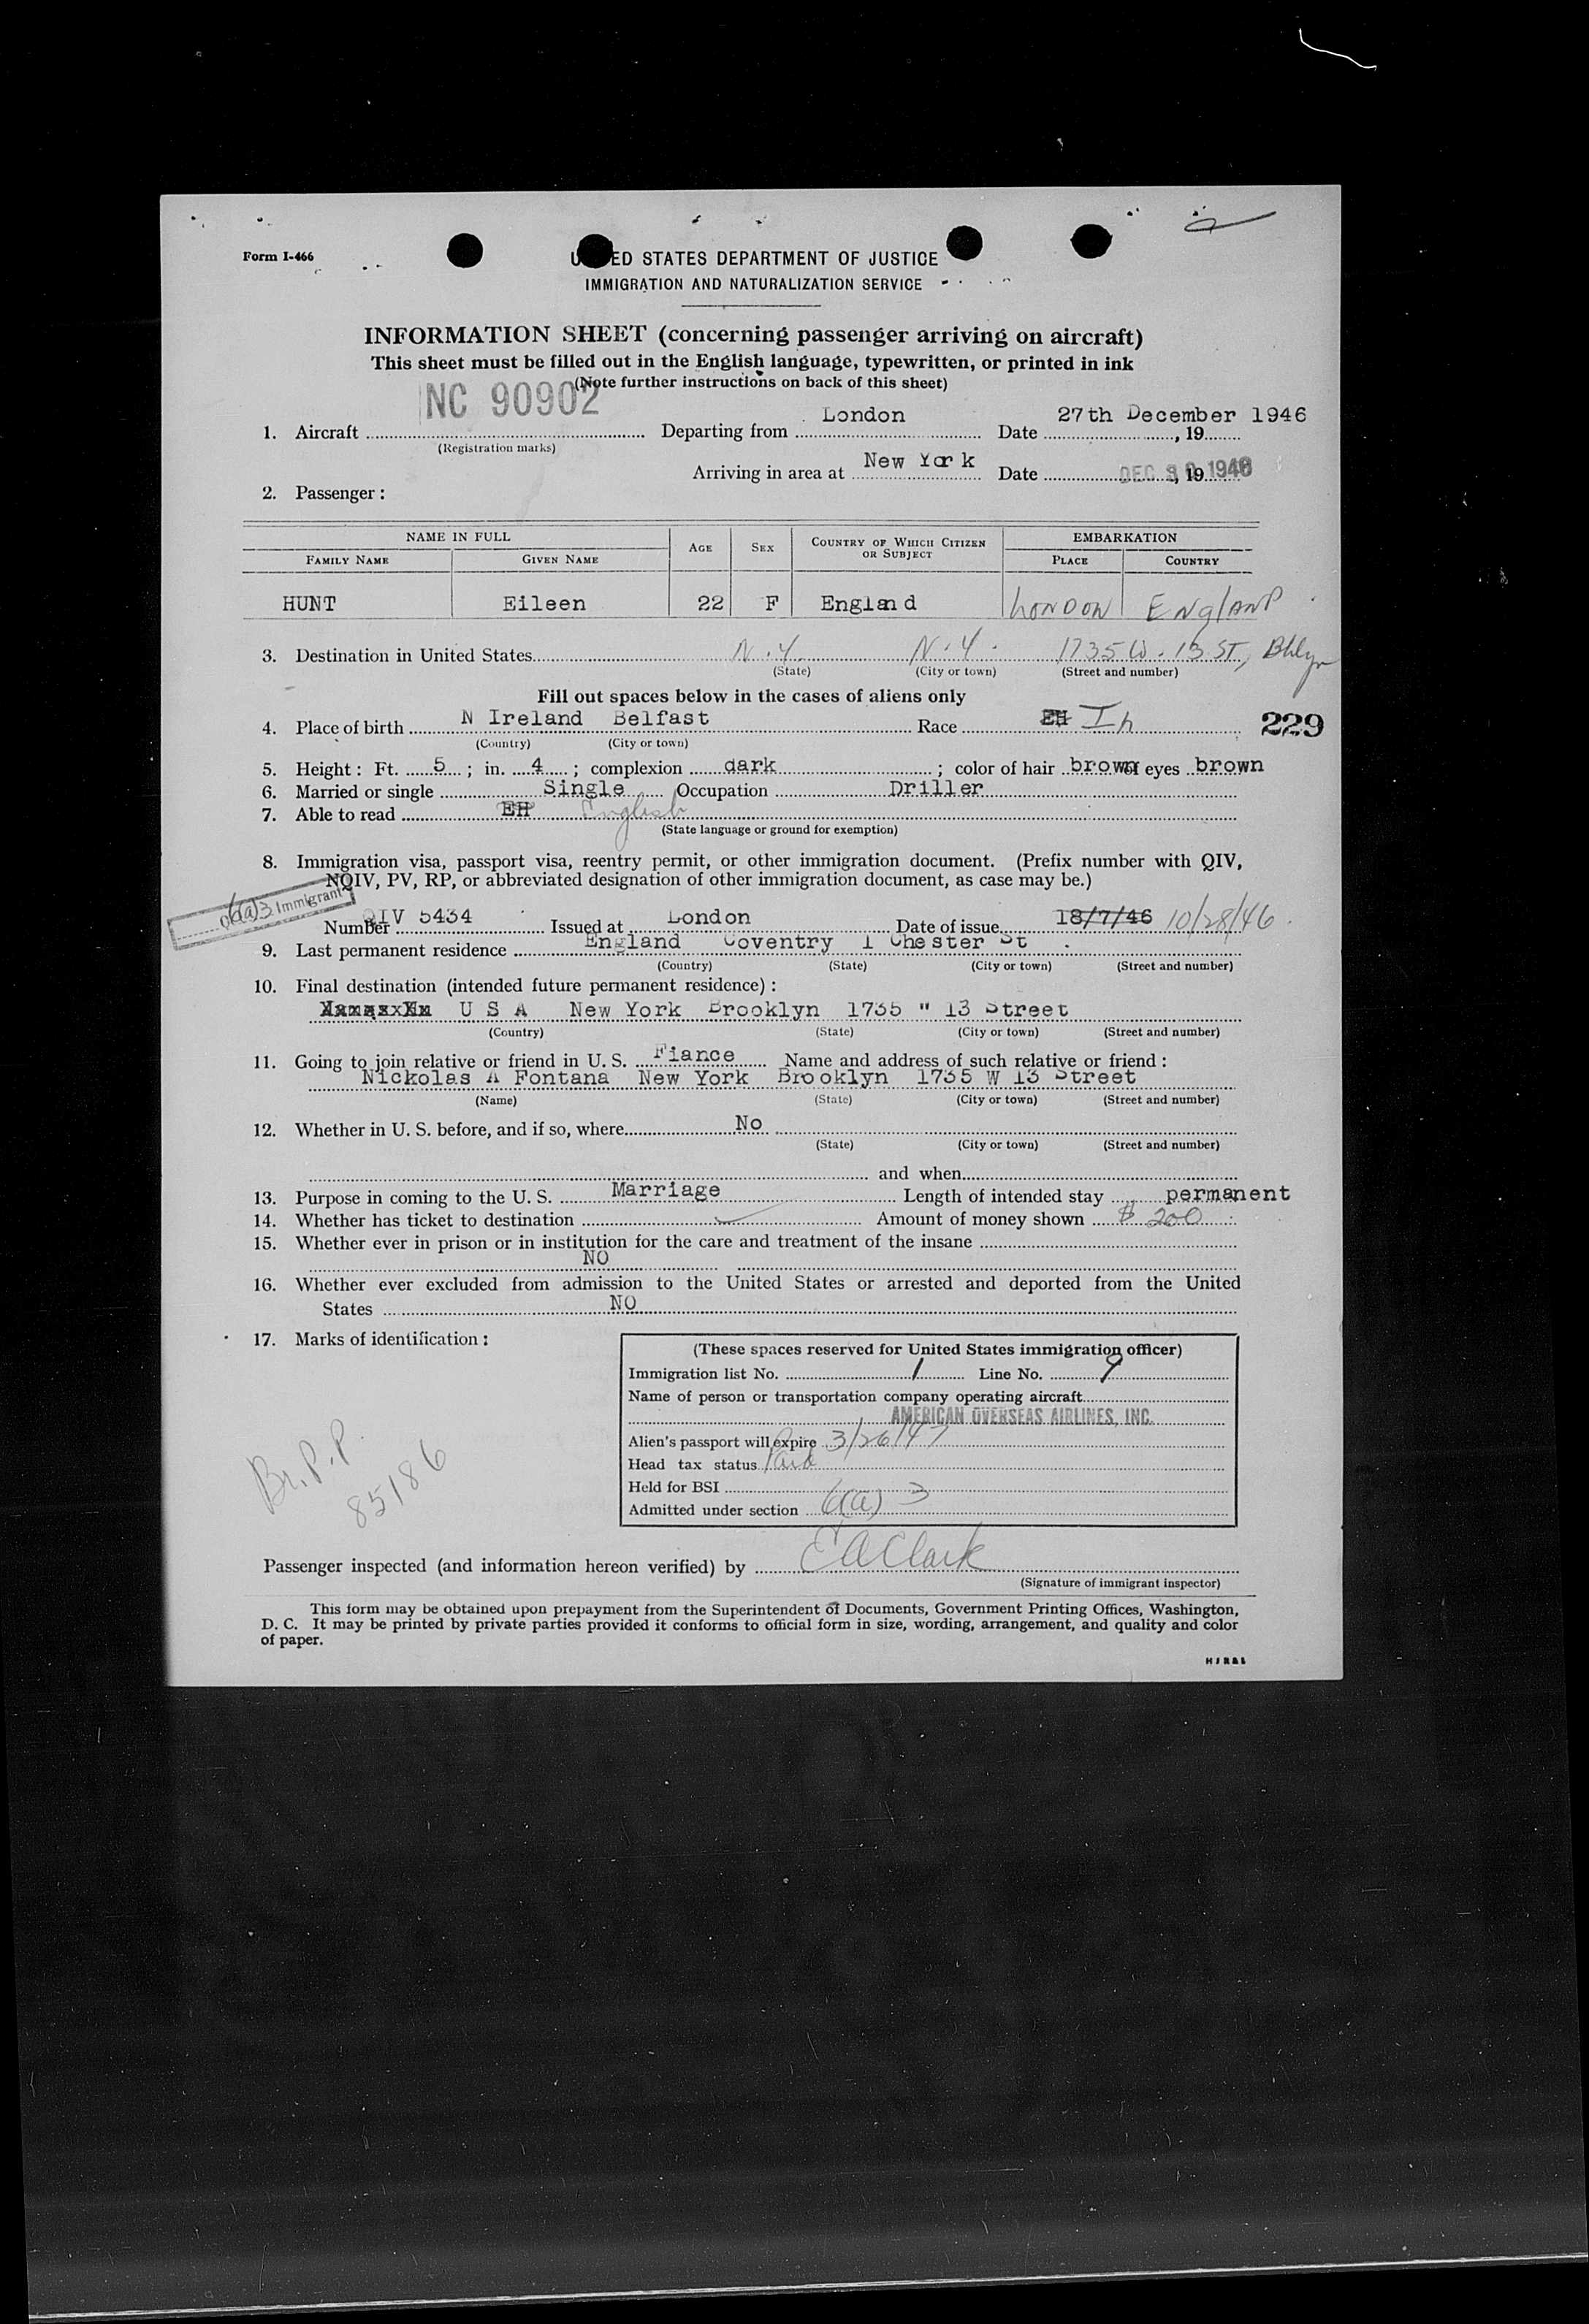 Form I-466
UNITED STATES DEPARTMENT OF JUSTICE
IMMIGRATION AND NATURALIZATION SERVICE
INFORMATION SHEET (concerning passenger arriving on aircraft)
This sheet must be filled out in the English language, typewritten, or printed in ink
(Note further instructions on back of this sheet)
NC 90902
1. Aircraft Departing from London Date 27th December 1946, 19
(Registration marks)
Arriving in area at New York Date DEC 1946, 19
2. Passenger:
NAME IN FULL AGE SEX COUNTRY OF WHICH CITIZEN OR SUBJECT EMBARKATION
FAMILY NAME GIVEN NAME PLACE COUNTRY
HUNT Eileen 22 F England LONDON ENglAND
3. Destination in United States N.Y. N.Y. 1735 W. 13 ST, Bklyn
(State) (City or town) (Street and number)
Fill out spaces below in the cases of aliens only
4. Place of birth N Ireland Belfast Race EH Ir 229
(Country) (City or town)
5. Height: Ft. 5; in. 4; complexion dark; color of hair brown of eyes brown
6. Married or single Single Occupation Driller
7. Able to read EH English
(State language or ground for exemption)
8. Immigration visa, passport visa, reentry permit, or other immigration document. (Prefix number with QIV,
NQIV, PV, RP, or abbreviated designation of other immigration document, as case may be.)
6(a)3 Immigrant
Number QIV 5434 Issued at London Date of issue 18/7/46 10/28/46
9. Last permanent residence England Coventry 1 Chester St.
(Country) (State) (City or town) (Street and number)
10. Final destination (intended future permanent residence):
U S A New York Brooklyn 1735 " 13 Street
(Country) (State) (City or town) (Street and number)
11. Going to join relative or friend in U. S. Fiance Name and address of such relative or friend:
Nickolas A Fontana New York Brooklyn 1735 W 13 Street
(Name) (State) (City or town) (Street and number)
12. Whether in U. S. before, and if so, where No
(State) (City or town) (Street and number)
and when
13. Purpose in coming to the U. S. Marriage Length of intended stay permanent
14. Whether has ticket to destination Amount of money shown $ 200
15. Whether ever in prison or in institution for the care and treatment of the insane
NO
16. Whether ever excluded from admission to the United States or arrested and deported from the United
States NO
17. Marks of identification:
(These spaces reserved for United States immigration officer)
Immigration list No. 1 Line No. 9
Name of person or transportation company operating aircraft
AMERICAN OVERSEAS AIRLINES, INC.
Alien's passport will expire 3/26/47
Head tax status Paid
Held for BSI
Admitted under section 6(a) 3
Br. P. P.
85186
Passenger inspected (and information hereon verified) by E A Clark
(Signature of immigrant inspector)
This form may be obtained upon prepayment from the Superintendent of Documents, Government Printing Offices, Washington,
D. C. It may be printed by private parties provided it conforms to official form in size, wording, arrangement, and quality and color
of paper.